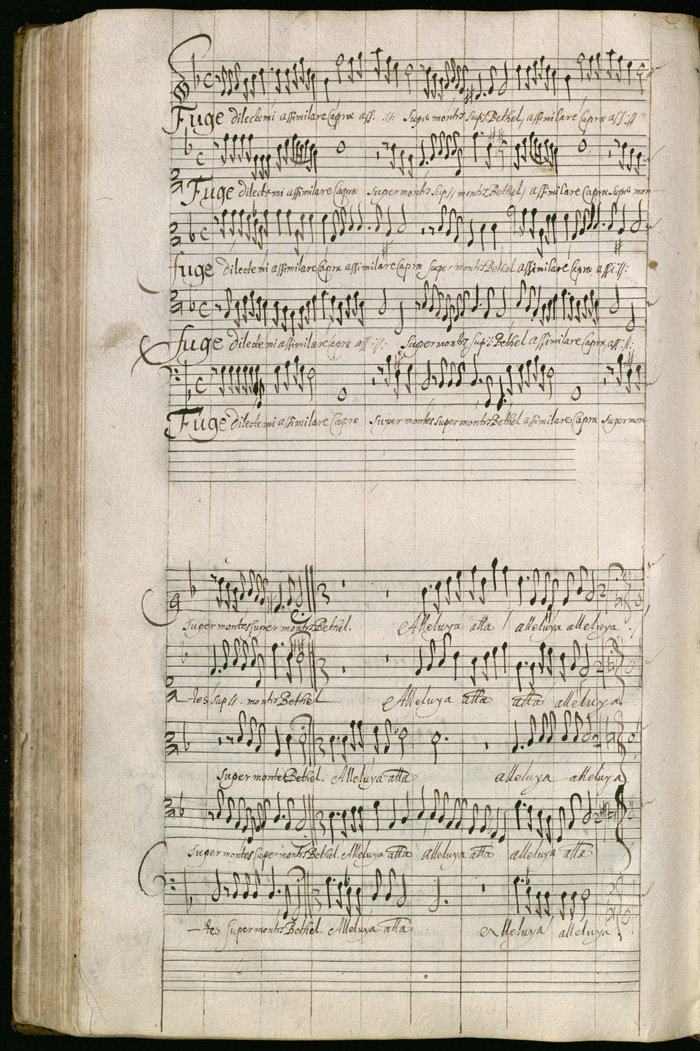 Fuge dilecte mi assimilare Capræ ass: :// Super montes Sup: Bethel, assimilare Capræ ass ://:
Fuge dilecte mi assimilare Capræ Super montes Sup// montes Bethel, assimilare Capræ Super mon
fuge dilecte mi assimilare Capræ assimilare Capræ Super montes Bethel assimilare Capræ assi ://:
fuge dilecte mi assimilare Capræ ass ://: Super montes sup :/: Bethel assimilare Capræ, ass ://:
Fuge dilecte mi assimilare Capræ Super montes Super montes Bethel assimilare Capræ Super mon
Super montes super montes Bethel. Alleluya alla alleluya alleluya.
tes Sup//. montes Bethel Alleluya alla alla alleluya
Super montes Bethel. Alleluya alla alleluya alleluya
Super montes super montes Bethel. Alleluya alla alleluya alla alleluya alla
–tes Super montes Bethel. Alleluya alla Alleluya alleluya